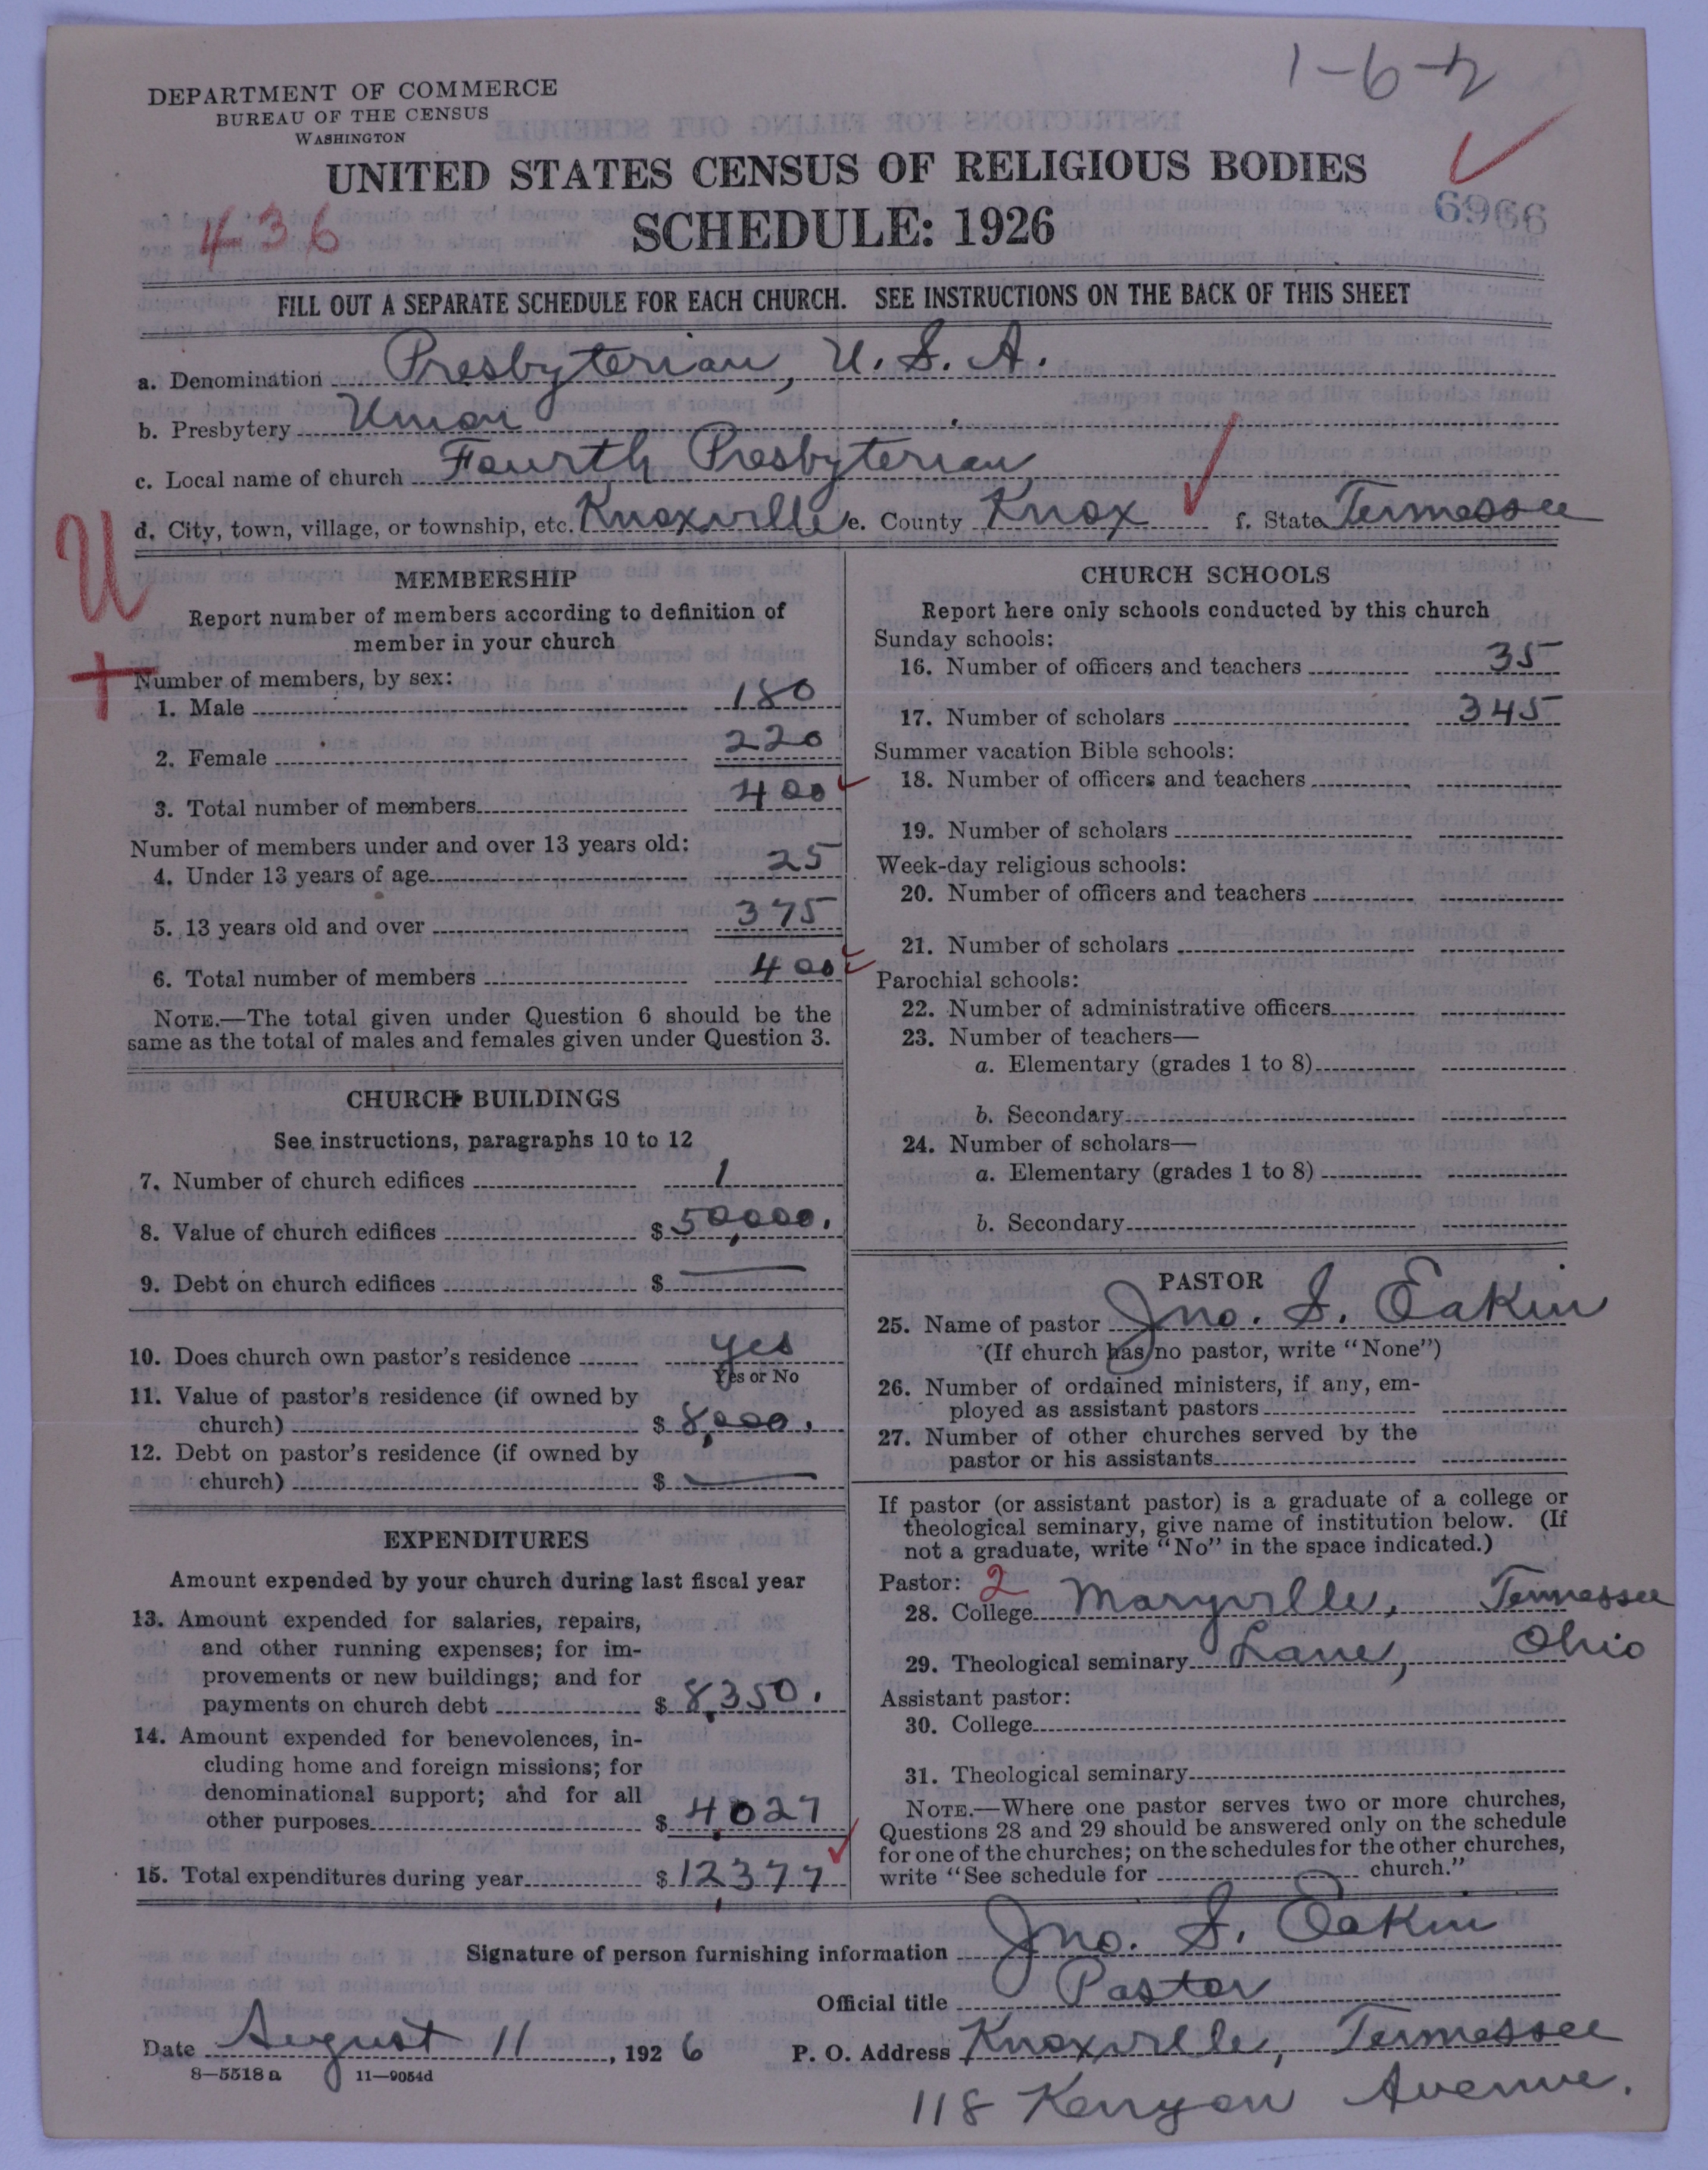 1-6-2
DEPARTMENT OF COMMERCE
BUREAU OF THE CENSUS
WASHINGTON
UNITED STATES CENSUS OF RELIGIOUS BODIES
SCHEDULE: 1926
436
6966
FILL OUT A SEPARATE SCHEDULE FOR EACH CHURCH. SEE INSTRUCTIONS ON THE BACK OF THIS SHEET
a. Denomination Presbyterian, U. S. A.
b. Presbytery Union
c. Local name of church Fourth Presbyterian
d. City, town, village, or township, etc. Knoxville e. County Knox f. State Tennessee
U
MEMBERSHIP
Report number of members according to definition of
member in your church
Number of members, by sex:
1. Male 180
2. Female 220
3. Total number of members 400
Number of members under and over 13 years old:
4. Under 13 years of age 25
5. 13 years old and over 375
6. Total number of members 400
NOTE.—The total given under Question 6 should be the
same as the total of males and females given under Question 3.
CHURCH BUILDINGS
See instructions, paragraphs 10 to 12
7. Number of church edifices 1
8. Value of church edifices $ 50,000.
9. Debt on church edifices $ —
10. Does church own pastor's residence yes
Yes or No
11. Value of pastor's residence (if owned by
church) $ 8,000.
12. Debt on pastor's residence (if owned by
church) $ —
EXPENDITURES
Amount expended by your church during last fiscal year
13. Amount expended for salaries, repairs,
and other running expenses; for im-
provements or new buildings; and for
payments on church debt $ 8,350.
14. Amount expended for benevolences, in-
cluding home and foreign missions; for
denominational support; and for all
other purposes $ 4,027
15. Total expenditures during year $ 12,377
CHURCH SCHOOLS
Report here only schools conducted by this church
Sunday schools:
16. Number of officers and teachers 35
17. Number of scholars 345
Summer vacation Bible schools:
18. Number of officers and teachers
19. Number of scholars
Week-day religious schools:
20. Number of officers and teachers
21. Number of scholars
Parochial schools:
22. Number of administrative officers
23. Number of teachers—
a. Elementary (grades 1 to 8)
b. Secondary
24. Number of scholars—
a. Elementary (grades 1 to 8)
b. Secondary
PASTOR
25. Name of pastor Jno. S. Eakin
(If church has no pastor, write "None")
26. Number of ordained ministers, if any, em-
ployed as assistant pastors
27. Number of other churches served by the
pastor or his assistants
If pastor (or assistant pastor) is a graduate of a college or
theological seminary, give name of institution below. (If
not a graduate, write "No" in the space indicated.)
Pastor: 2
28. College Maryville, Tennessee
29. Theological seminary Lane, Ohio
Assistant pastor:
30. College
31. Theological seminary
NOTE.—Where one pastor serves two or more churches,
Questions 28 and 29 should be answered only on the schedule
for one of the churches; on the schedules for the other churches,
write "See schedule for church."
Signature of person furnishing information Jno. S. Eakin
Official title Pastor
Date August 11, 1926 P. O. Address Knoxville, Tennessee
8-5518a 11-9054d
118 Kenyon Avenue.